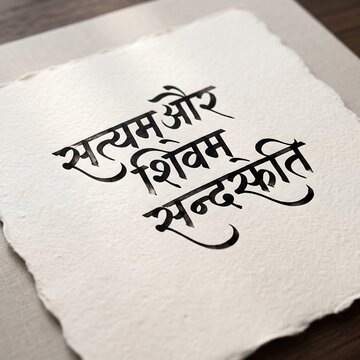 सत्यम् और
शिवम्
सन्दस्फति